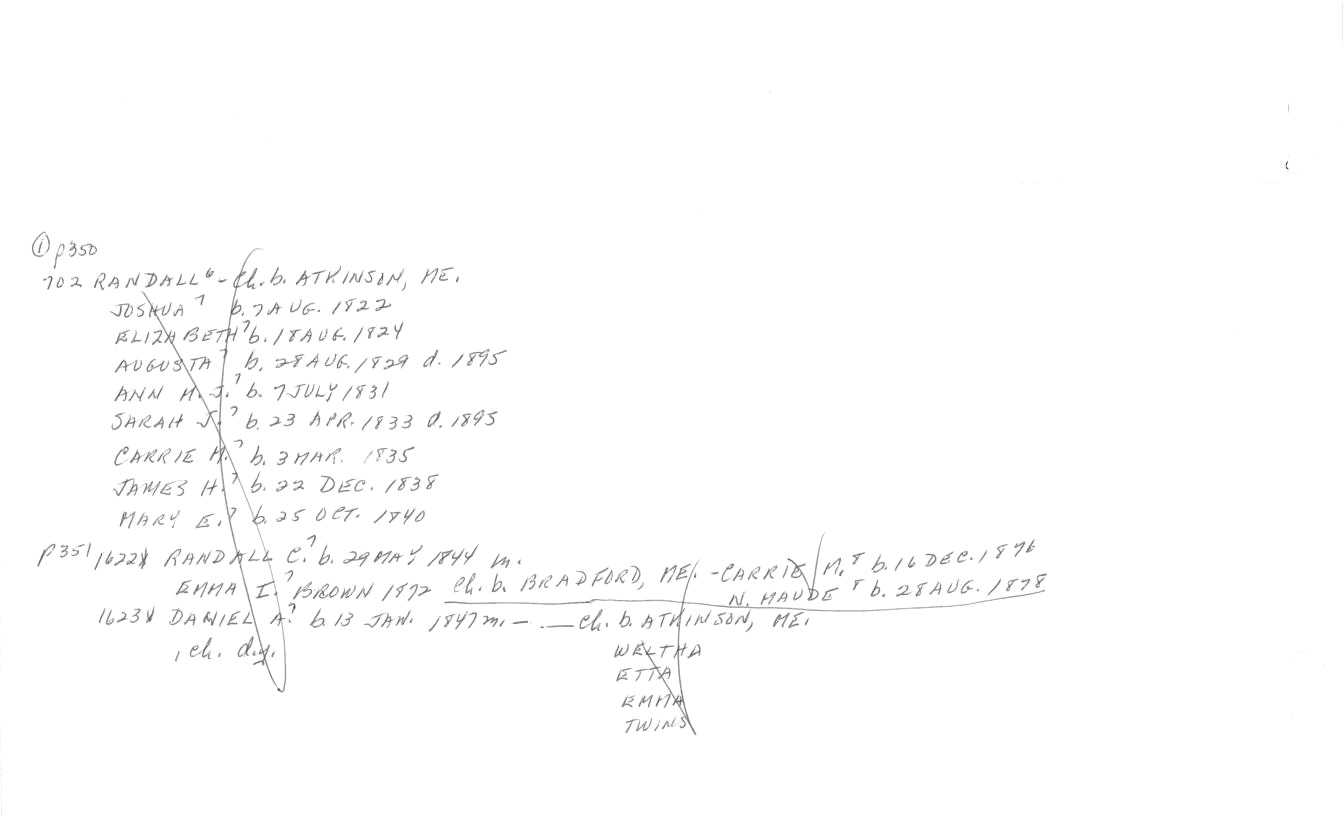 ① p350
702 RANDALL⁶ - Ch. b. ATKINSON, ME.
JOSHUA⁷ b. 7 AUG. 1822
ELIZABETH⁷ b. 18 AUG. 1824
AUGUSTA⁷ b. 28 AUG. 1829 d. 1895
ANN M. J.⁷ b. 7 JULY 1831
SARAH J.⁷ b. 23 APR. 1833 d. 1895
CARRIE M.⁷ b. 3 MAR. 1835
JAMES H.⁷ b. 22 DEC. 1838
MARY E.⁷ b. 25 OCT. 1840
P351 1622X RANDALL C.⁷ b. 29 MAY 1844 m.
EMMA I.⁷ BROWN 1872 Ch. b. BRADFORD, ME. - CARRIE M.⁸ b. 16 DEC. 1876
N. MAUDE⁸ b. 28 AUG. 1878
1623X DANIEL A.⁷ b. 13 JAN. 1847 m. - . — Ch. b. ATKINSON, ME.
, ch. d.y. WELTHA
ETTA
EMMA
TWINS